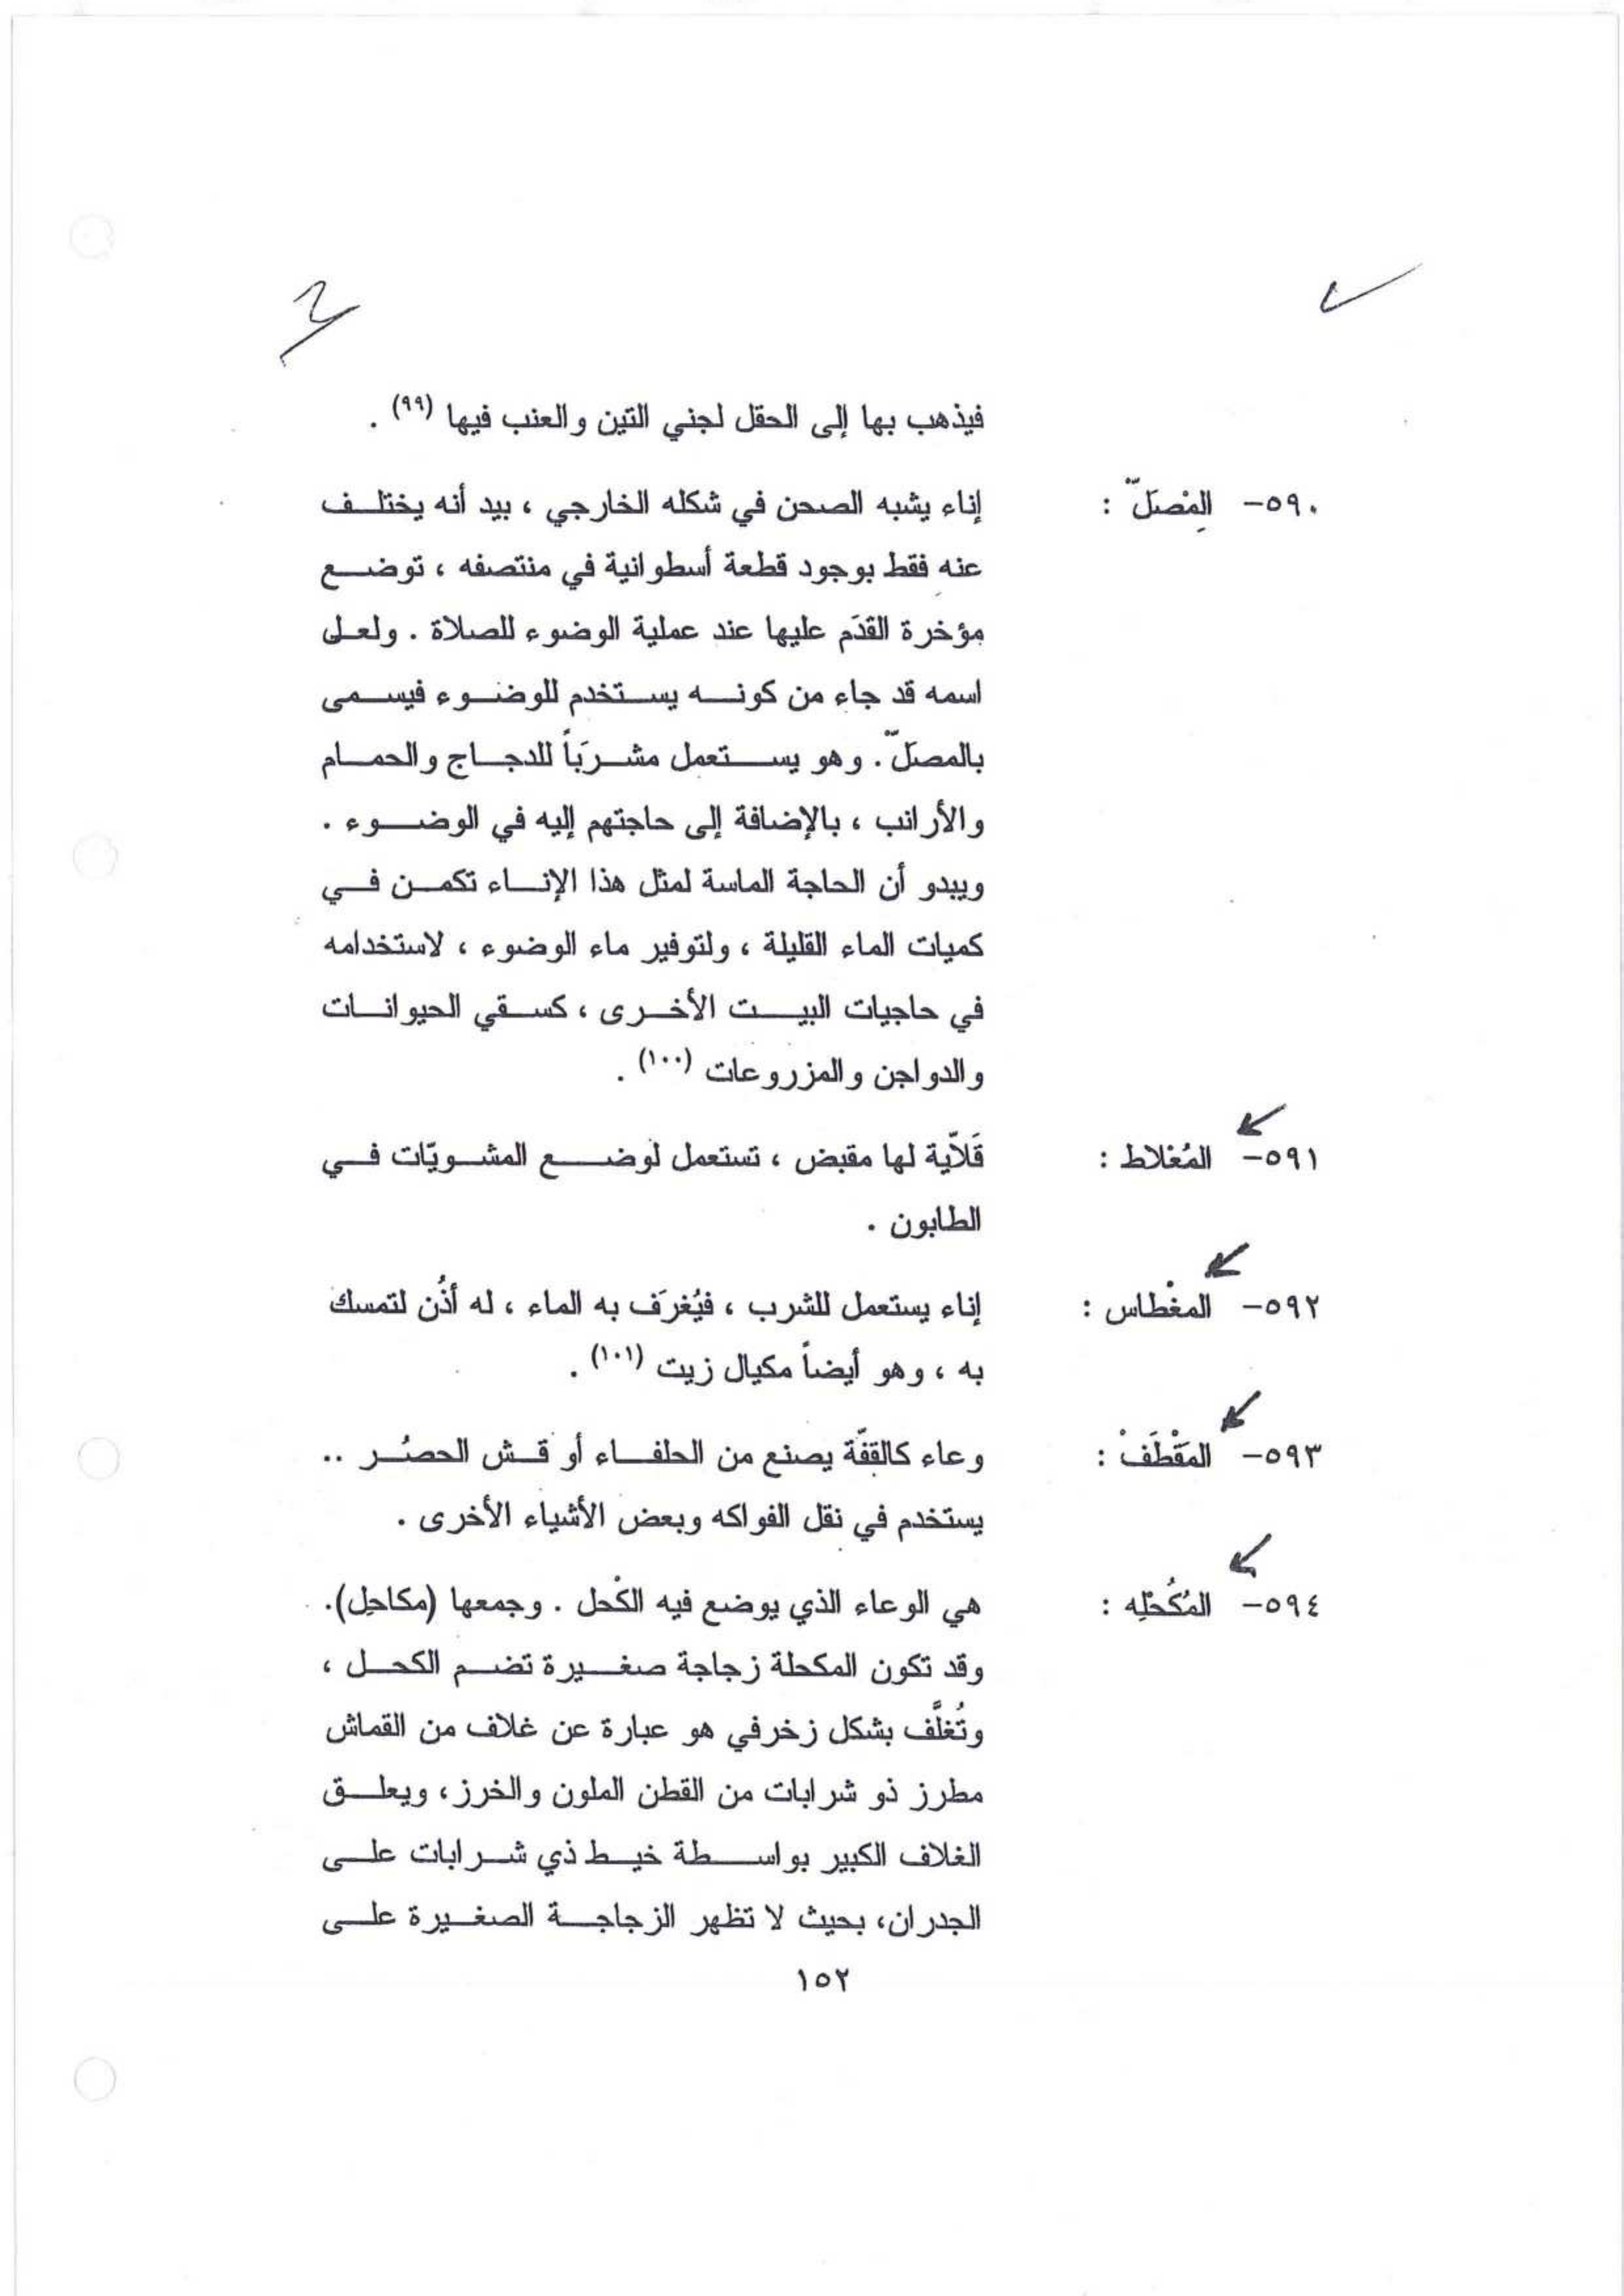 فيذهب بها إلى الحقل لجني التين والعنب فيها (٩٩) .
٥٩٠- المِنْصَلّ : إناء يشبه الصحن في شكله الخارجي ، بيد أنه يختلف
عنه فقط بوجود قطعة أسطوانية في منتصفه ، توضع
مؤخرة القدَم عليها عند عملية الوضوء للصلاة . ولعل
اسمه قد جاء من كونه يستخدم للوضوء فيسمى
بالمصَلّ . وهو يستعمل مشرَباً للدجاج والحمام
والأرانب ، بالإضافة إلى حاجتهم إليه في الوضوء .
ويبدو أن الحاجة الماسة لمثل هذا الإناء تكمن في
كميات الماء القليلة ، ولتوفير ماء الوضوء ، لاستخدامه
في حاجيات البيت الأخرى ، كسقي الحيوانات
والدواجن والمزروعات (١٠٠) .
٥٩١- المُغلاط : قَلاّية لها مقبض ، تستعمل لوضع المشويّات في
الطابون .
٥٩٢- المغْطاس : إناء يستعمل للشرب ، فيُغرَف به الماء ، له أذُن لتمسك
به ، وهو أيضاً مكيال زيت (١٠١) .
٥٩٣- المَقْطَفْ : وعاء كالقفّة يصنع من الحلفاء أو قش الحصُر ..
يستخدم في نقل الفواكه وبعض الأشياء الأخرى .
٥٩٤- المُكُحلِه : هي الوعاء الذي يوضع فيه الكْحل . وجمعها (مكاحِل).
وقد تكون المكحلة زجاجة صغيرة تضم الكحل ،
وتُغلَّف بشكل زخرفي هو عبارة عن غلاف من القماش
مطرز ذو شرابات من القطن الملون والخرز، ويعلق
الغلاف الكبير بواسطة خيط ذي شرابات على
الجدران، بحيث لا تظهر الزجاجة الصغيرة على
١٥٢